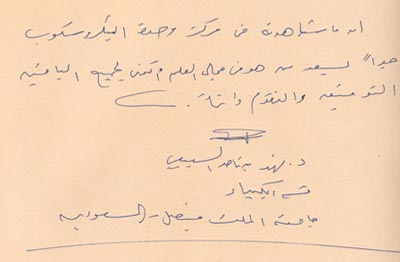 ان ما شاهدته في مركز وحدة الميكروسكوب
جداً يسعد من هو في مجال العلم واتمنى لجميع العاملين
التوفيق والتقدم
د. فهد بن ناصر
قسم الكيمياء
جامعة الملك فيصل - السعودية